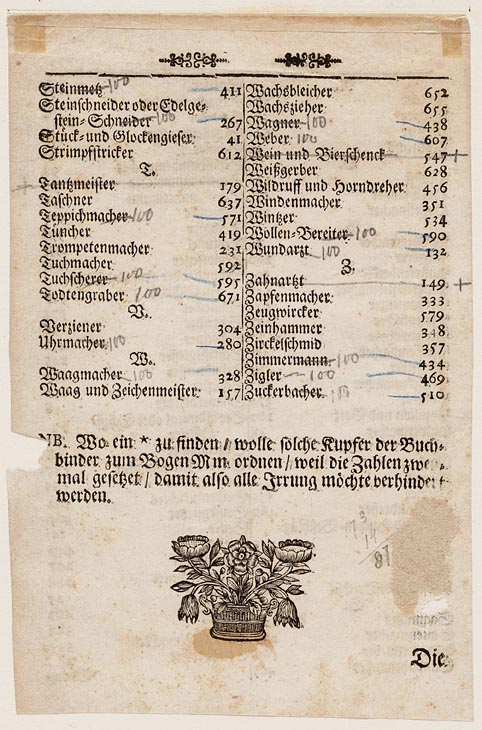 Steinmetz 100 411
Steinschneider oder Edelge-
stein-Schneider 100 267
Stück- und Glockengieser 41
Strimpfstricker 612
T.
Tantzmeister 179
Taschner 637
Teppichmacher 100 571
Tüncher 419
Trompetenmacher 231
Tuchmacher 592
Tuchscherer 100 595
Todtengraber 100 671
V.
Verziener 304
Uhrmacher 100 280
W.
Waagmacher 100 328
Waag und Zeichenmeister 157
Wachsbleicher 652
Wachszieher 655
Wagner 100 438
Weber 100 607
Wein und Bierschenck 547
Weißgerber 628
Wildruff und Horndreher 456
Windenmacher 351
Wintzer 534
Wollen-Bereiter 100 590
Wundartzt 100 132
Z.
Zahnartzt 149
Zapfenmacher 333
Zeugwircker 579
Zeinhammer 348
Zirckelschmid 357
Zimmermann 100 434
Zigler 100 469
Zuckerbacher 510
NB. Wo ein * zu finden / wolle solche Kupfer der Buch-
binder zum Bogen M m. ordnen / weil die Zahlen zwey-
mal gesetzet / damit also alle Irrung möchte verhindert
werden.
87
Die